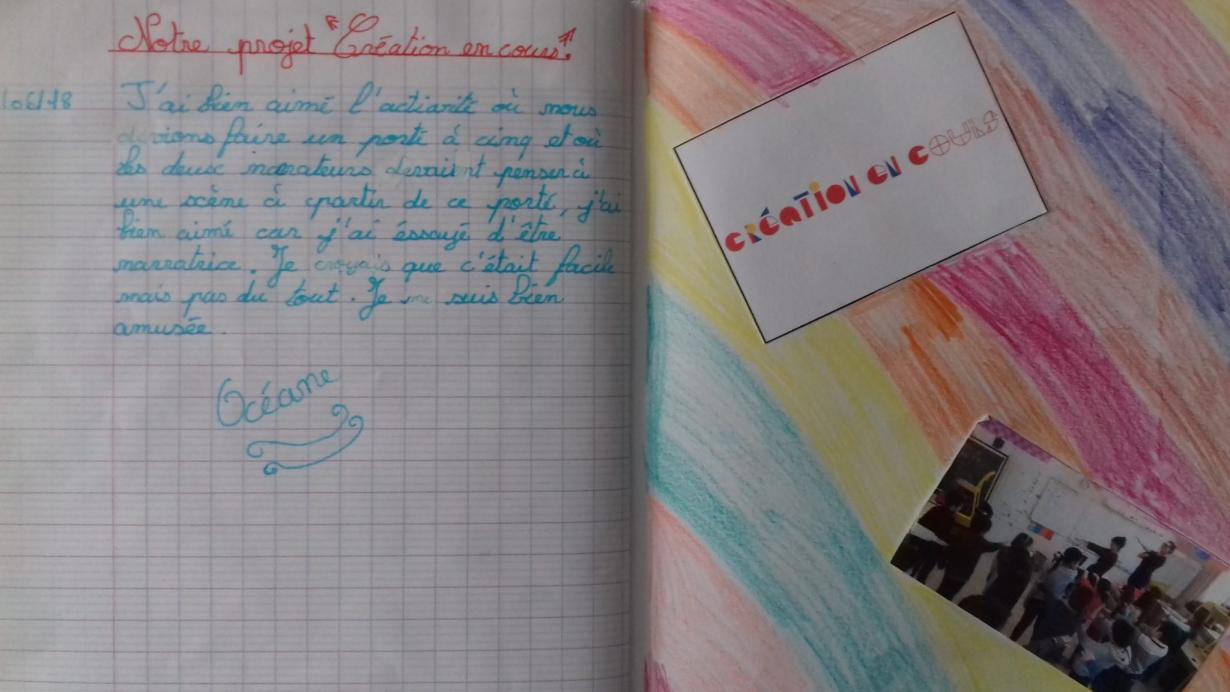 Notre projet "Création en cours".
/06/18
J'ai bien aimé l'activité où nous
devions faire un porté à cinq et où
les deux narrateurs devaient penser à
une scène à partir de ce porté, j'ai
bien aimé car j'ai éssayé d'être
narratrice. Je croyais que c'était facile
mais pas du tout. Je me suis bien
amusée.
Océane
CRÉATION EN COURS